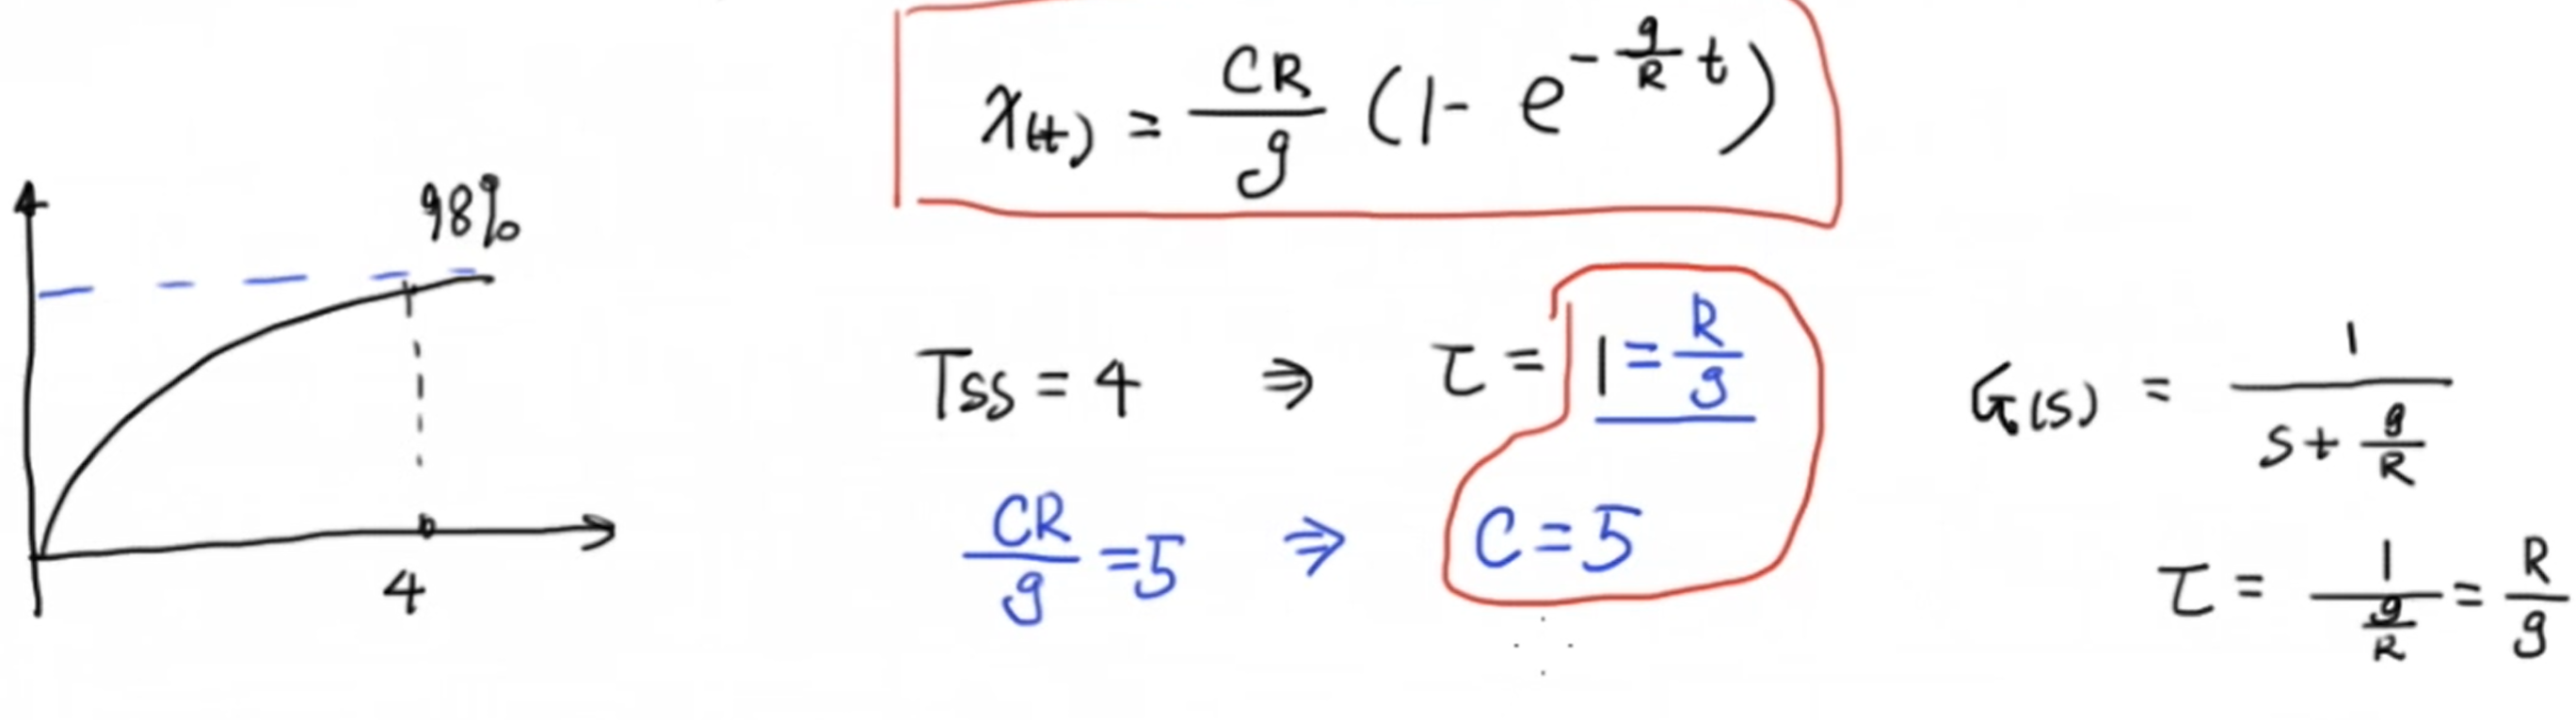 x(t) = CR/g (1 - e^(-g/R t))
98%
4
Tss = 4 ⇒ τ = 1 = R/g
CR/g = 5 ⇒ C = 5
G(s) = 1/(s + g/R)
τ = 1/(g/R) = R/g